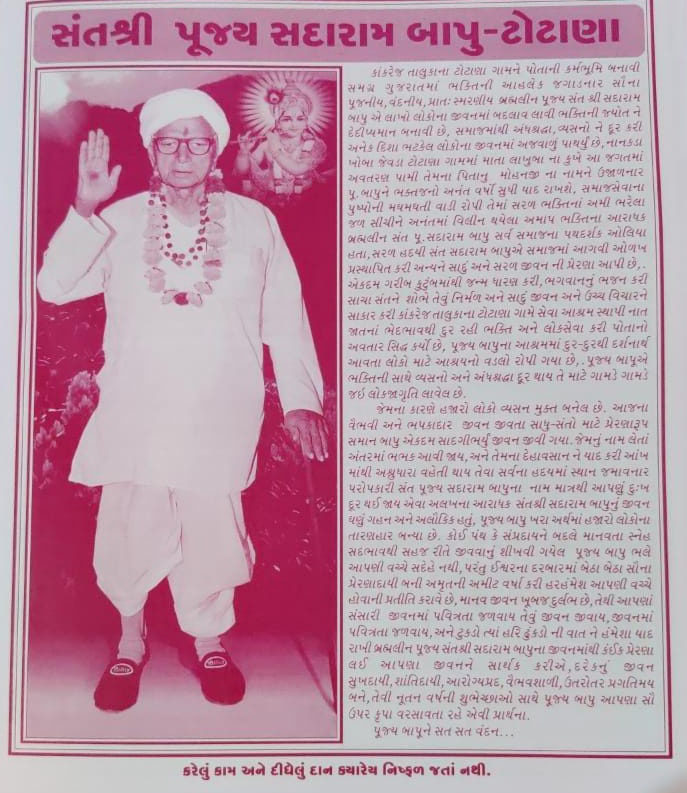 સંતશ્રી પૂજ્ય સદારામ બાપુ-ટોટાણા
કાંકરેજ તાલુકાના ટોટાણા ગામને પોતાની કર્મભૂમિ બનાવી
સમગ્ર ગુજરાતમાં ભક્તિની આહલેક જગાડનાર સૌના
પૂજનીય,વંદનીય, પ્રાતઃ સ્મરણીય બ્રહ્મલીન પૂજ્ય સંત શ્રી સદારામ
બાપુ એ લાખો લોકોના જીવનમાં બદલાવ લાવી ભક્તિની જ્યોત ને
દેદીપ્યમાન બનાવી છે, સમાજમાંથી અંધશ્રદ્ધા,વ્યસનો ને દૂર કરી
અનેક દિશા ભટકેલ લોકોના જીવનમાં અજવાળું પાથર્યું છે,નાનકડા
ખોબા જેવડા ટોટાણા ગામમાં માતા લાખુબા ના કુખે આ જગતમાં
અવતરણ પામી તેમના પિતાનુ મોહનજી ના નામને ઉજાળનાર
પૂ.બાપુને ભક્તજનો અનંત વર્ષો સુધી યાદ રાખશે, સમાજસેવાના
પુષ્પોની મઘમઘતી વાડી રોપી તેમાં સરળ ભક્તિનાં અમી ભરેલા
જળ સીંચીને અનંતમાં વિલીન થયેલા અમાપ ભક્તિના આરાધક
બ્રહ્મલીન સંત પૂ.સદારામ બાપુ સર્વ સમાજના પથદર્શક ઓલિયા
હતા,સરળ હદયી સંત સદારામ બાપુએ સમાજમાં આગવી ઓળખ
પ્રસ્થાપિત કરી અન્યને સાદું અને સરળ જીવન ની પ્રેરણા આપી છે,.
એકદમ ગરીબ કુટુંબમાંથી જન્મ ધારણ કરી,ભગવાનનું ભજન કરી
સાચા સંતને શોભે તેવું નિર્મળ અને સાદું જીવન અને ઉચ્ચ વિચારને
સાકાર કરી કાંકરેજ તાલુકાના ટોટાણા ગામે સેવા આશ્રમ સ્થાપી નાત
જાતનાં ભેદભાવથી દુર રહી ભક્તિ અને લોકસેવા કરી પોતાનો
અવતાર સિદ્ધ કર્યો છે, પૂજ્ય બાપુના આશ્રમમાં દુર-દુરથી દર્શનાર્થે
આવતા લોકો માટે આશ્રયનો વડલો રોપી ગયા છે,.પૂજ્ય બાપુએ
ભક્તિની સાથે વ્યસનો અને અંધશ્રદ્ધા દૂર થાય તે માટે ગામડે ગામડે
જઈ લોકજાગૃતિ લાવેલ છે.
જેમના કારણે હજારો લોકો વ્યસન મુક્ત બનેલ છે. આજના
વૈભવી અને ભપકાદાર જીવન જીવતા સાધુ-સંતો માટે પ્રેરણારૂપ
સમાન બાપુ એકદમ સાદગીભર્યું જીવન જીવી ગયા.જેમનું નામ લેતાં
અંતરમાં ભભક આવી જાય,અને તેમના દેહાવસાન ને યાદ કરી આંખ
માંથી અશ્રુધારા વહેતી થાય તેવા સર્વના હદયમાં સ્થાન જમાવનાર
પરોપકારી સંત પૂજ્ય સદારામ બાપુના નામ માત્રથી આપણું દુઃખ
દૂર થઈ જાય એવા અલખના આરાધક સંતશ્રી સદારામ બાપુનું જીવન
ઘણું ગહન અને અલૌકિકહતું, પૂજ્ય બાપુ ખરા અર્થમાં હજારો લોકોના
તારણહાર બન્યા છે. કોઈ પંથ કે સંપ્રદાયને બદલે માનવતા સ્નેહ
સદભાવથી સહજ રીતે જીવવાનું શીખવી ગયેલ પૂજ્ય બાપુ ભલે
આપણી વચ્ચે સદેહે નથી,પરંતુ ઈશ્વરના દરબારમાં બેઠા બેઠા સૌના
પ્રેરણાદાયી બની અમૃતની અમીટ વર્ષા કરી હરહંમેશ આપણી વચ્ચે
હોવાની પ્રતીતિ કરાવે છે,માનવ જીવન ખૂબજ દુર્લભ છે,તેથી આપણાં
સંસારી જીવનમાં પવિત્રતા જળવાય તેવું જીવન જીવાય,જીવનમાં
પવિત્રતા જળવાય,અને ટુકડો ત્યાં હરિ ઢુંકડો ની વાત ને હંમેશા યાદ
રાખી બ્રહ્મલીન પૂજ્ય સંતશ્રી સદારામ બાપુના જીવનમાંથી કંઈક પ્રેરણા
લઈ આપણા જીવનને સાર્થક કરીએ,દરેકનું જીવન
સુખદાયી,શાંતિદાયી,આરોગ્યપ્રદ,વૈભવશાળી,ઉતરોતર પ્રગતિમય
બને,તેવી નૂતન વર્ષની શુભેચ્છાઓ સાથે પૂજ્ય બાપુ આપણા સૌ
ઉપર કૃપા વરસાવતા રહે એવી પ્રાર્થના.
પૂજ્ય બાપૂને સત સત વંદન...
કરેલું કામ અને દીધેલું દાન ક્યારેય નિષ્ફળ જતાં નથી.